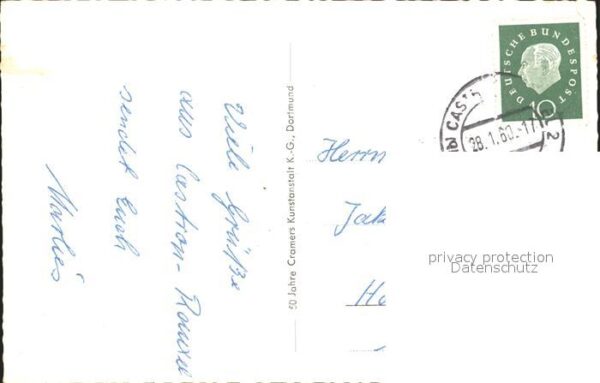 Viele Grüße
aus Castrop-Rauxel
sendet Euch
Marlies
50 Jahre Cramers Kunstanstalt K.-G., Dortmund
DEUTSCHE BUNDESPOST
10
CAST
28.1.60.-17
2
Herrn
Jak
He
privacy protection
Datenschutz